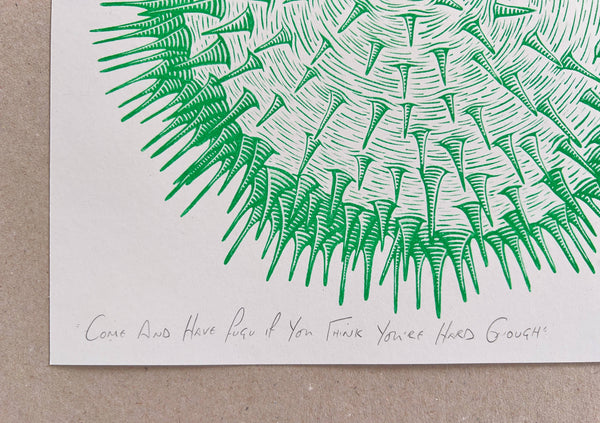 "Come And Have Fugu if You Think You're Hard Enough"